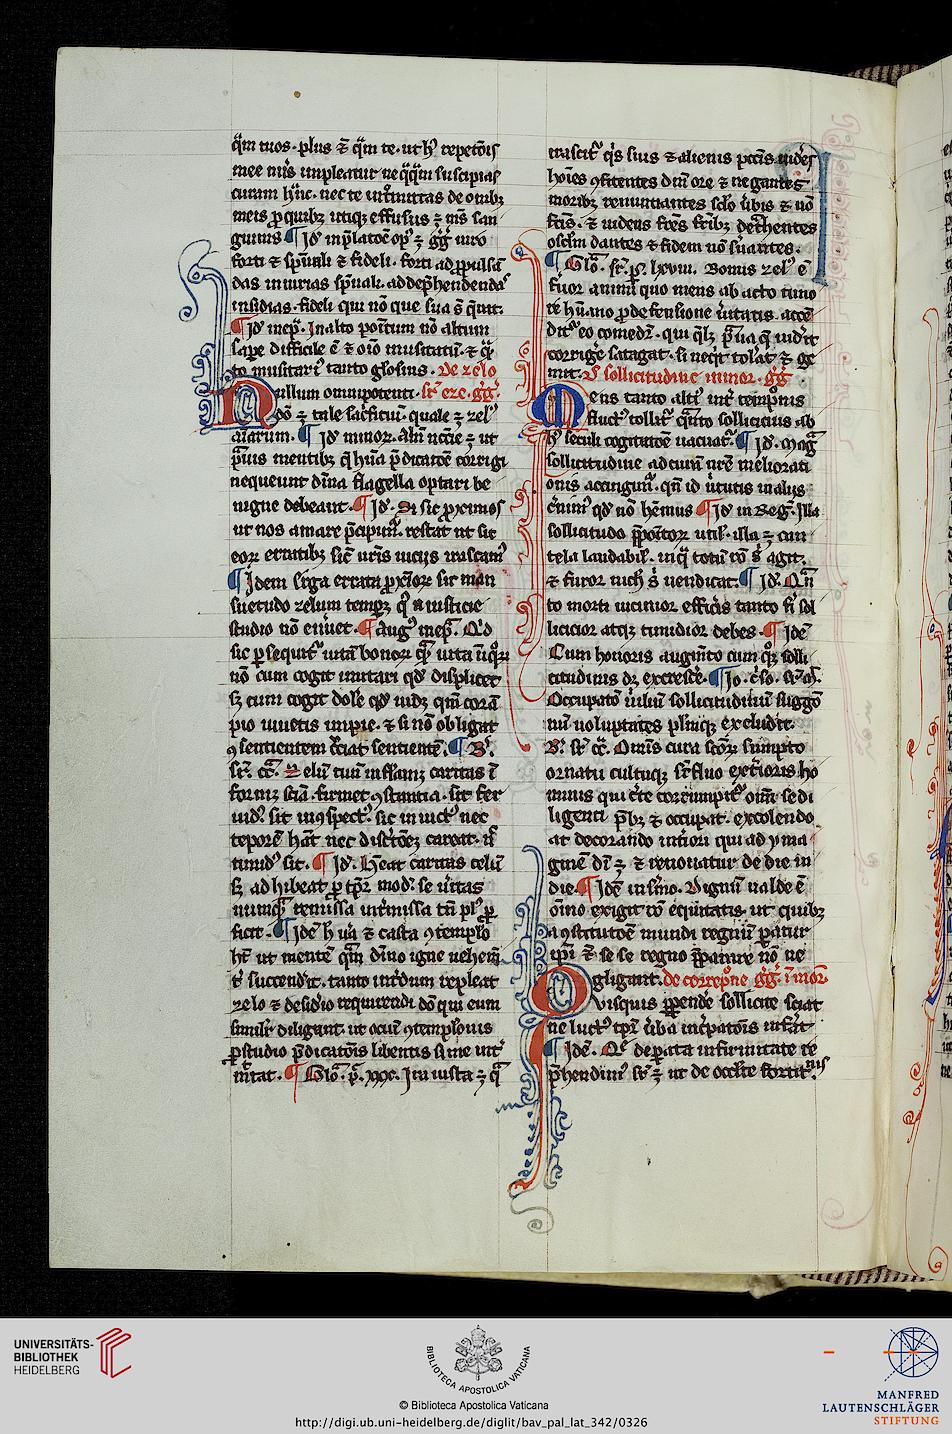 q̃m tuos. plus ē q̃m te. ut hͥ repetōis
mee mr̄s impleatur neq̃q̃m suscipias
curam
meis ꝓ quibꝫ utiqꝫ effusus ꝫ mīs san
guinis ¶ Jd̄
forti ⁊ sp̄uali ⁊ fideli. forti ad ꝓpulsā
das iniurias sp̄uali. ad dep̄hendendas
insidias. fideli qui nō que sua s̄ q̄rat.
¶ Jd̄ Jn alto positum nō altum
sape difficile ē ⁊ oīo inusitatū. ⁊ q̄
to inusitatꝰ tanto gl̄osius. De zelo
Nullum omnipotenti. sr̄ eze. gg̃.
dō ꝫ tale sac̄ficiū. quale ꝫ zelꝰ
aīarum. ¶ Jd̄
p̄uis mentibꝫ q̄ hūa p̄dicatōe corrigi
nequeunt diīna flagella optari be
nigne debeant. ¶ Jd̄. Si sic proximos
ut nos amare p̄cipimur. restat ut sic
eoꝝ erratibꝫ sic̄ nr̄is uiciis irascamꝰ
¶ Jdem erga errata ꝓximoꝝ sit man
suetudo zelum iusticie
studio nō ¶ Augꝰ
sic ꝑsequitꝰ uitā bonoꝝ
nō cum cogit imitari qd̄ displicet
sꝫ cum cogit dolē qd̄
pio uiuetis impie. ⁊ si nō obligat
ꝯsentientem sentientē. ¶ Bꝰ.
sr̄. cā. Zelū tuū inflāmꝫ caritas ī
formꝫ sciā. firmet ꝯstantia. sit fer
uidꝰ. sit ꝯspectꝰ. sit inuictꝰ nec
teporē hāt nec disc̄tōeꝫ careat. ñ
timidꝰ sit. ¶ Jd̄. Habeat caritas zelū
sꝫ adhibeat ꝓ tꝑe modꝰ se ūitas
numq̄ remissa
ficit. ¶ Jdē ⁊ casta ꝯtemplō
ht̄ ut mentē q̄m diīno igne
succendit. tanto repleat
zelo ⁊ desid̄io requirendi dō qui eum
simil̄r diligant. ut ocium ꝯtemplōnis
ꝓ studio p̄dicatōis libentis sime int̄
m̄tat. ¶ Glō. p̄. xxx. Jra iusta ꝫ q̄
irascitꝰ q̄s suis ⁊ alienis pctīs uidēs
hoīes ꝯfitentes dm̄ ore ⁊ negantes
moribꝫ renuntiantes sc̄lo ūbis ⁊ nō
fc̄is. ⁊ uidens fr̄es fr̄ibꝫ det̄hentes
osc̄lm dantes ⁊ fidem nō s̄uantes.
¶ Glō. sr̄. ps̄. lxviii. Bonus zelꝰ ē
furor animi quo mens ab acto timo
re hūano ꝓ defensione ūitatis. accē
ditꝰ eo comedit̄. qui q̄lꝫ p̄ua q̄ uid̄it
corrige satagat. si neqͥt tol̄at ⁊ ge
mit. De sollicitudine minor. gg̃
Mens tanto altiꝰ int̄ temporis
fluctꝰ tollitꝰ q̄nto sollicitiꝰ ab
hͥ seculi cogitatōe uacuatꝰ. ¶ Jd̄.
sollicitudine ad cum nr̄e meliorati
onis accingimꝰ. qn̄ id ūtutis in aliis
c̄nimꝰ qd̄ nō hēmus ¶ Jd̄ in Reg̃. Jlla
sollicitudo p̄positoꝝ util̄. illa ꝫ cau
tela laudabil̄. in q̄ totū rō s̄ agit.
⁊ furor nich̄ s̄ uendicat. ¶ Jd̄. Qn̄
to morti uicinior efficeris tanto fi sol
licitior atqꝫ timidior debes. ¶ Jdē
Cum honoris augm̄to cum qꝫ solli
citudinis dꝫ excresce. ¶ Jo.
Occupatō
nū uoluptates pl̄niqꝫ excludit.
Bꝰ. sr̄ cā. Om̄is cura sumpto
ornatu cultuqꝫ sr̄fluo ext̄ioris ho
minis qui c̄te corrūmpitꝰ om̄i sedi
ligenti p̄bꝫ ⁊ occupat. excolendo
at decorando int̄iori qui ad yma
ginē di ꝫ ⁊ renouatur de die in
die. ¶ Jdē in s̄mo. Dignū ualde ē
oīno exigit rō equitatis. ut quibꝫ
a ꝯstitutōe mundi regnū patur
ip̄i ⁊ se se regno p̄parare nō ne
gligant. de correpōne gg̃. ī mor
Quisquis ꝑpende sollicite sciat
ne luctꝰ tp̄i ūba
¶ Jdē. infirmitate re
p̄hendimꝰ ut de occl̄te fortit̄.nis
UNIVERSITÄTS-
BIBLIOTHEK
HEIDELBERG
BIBLIOTECA APOSTOLICA VATICANA
© Biblioteca Apostolica Vaticana
http://digi.ub.uni-heidelberg.de/diglit/bav_pal_lat_342/0326
MANFRED
LAUTENSCHLÄGER
STIFTUNG